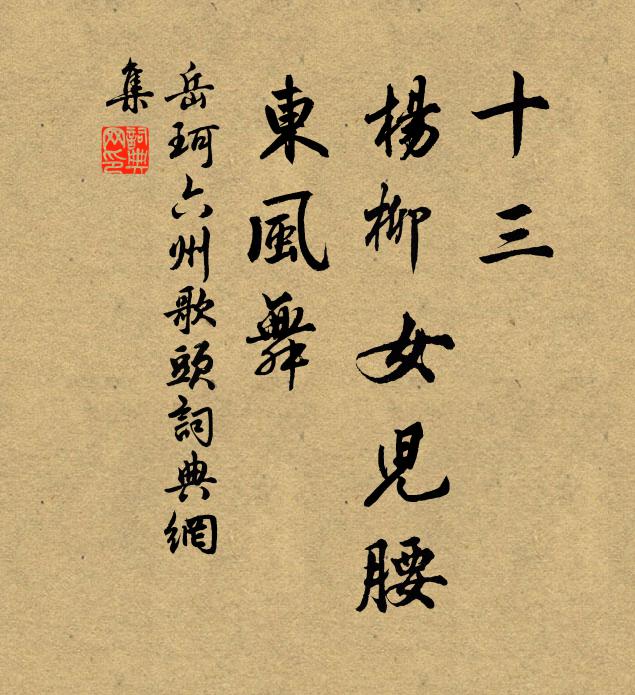 十三
楊柳女兒腰
東風舞
岳珂六州歌頭詞典網
集
詞典網印